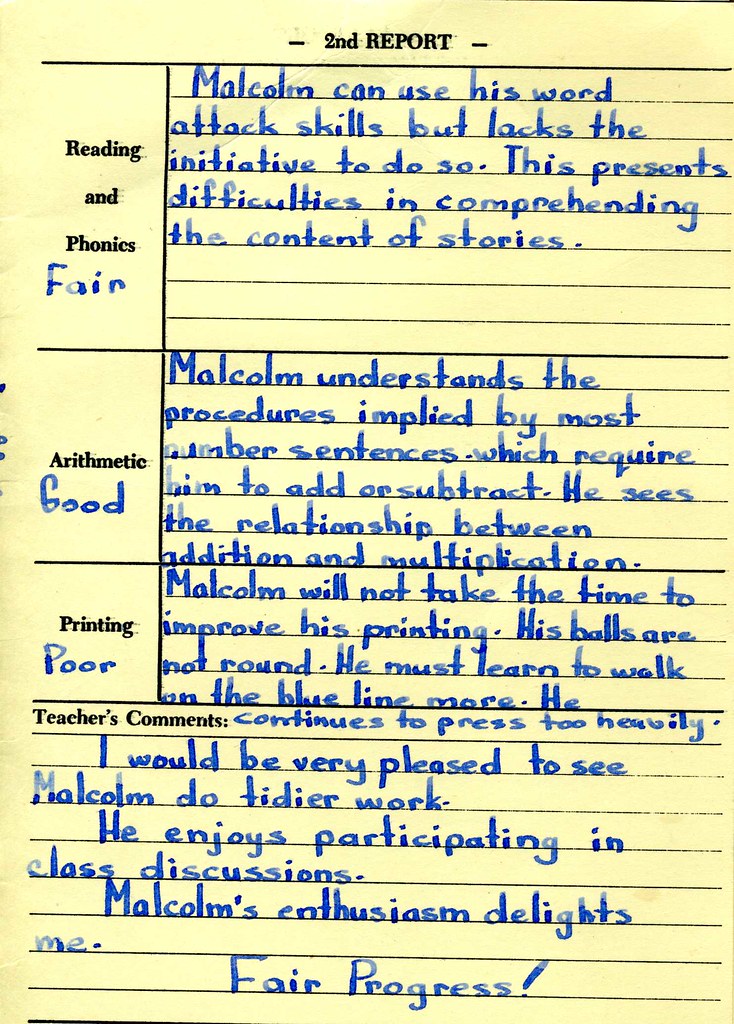 — 2nd REPORT —
Reading
and
Phonics
Fair
Malcolm can use his word
attack skills but lacks the
initiative to do so. This presents
difficulties in comprehending
the content of stories.
Arithmetic
Good
Malcolm understands the
procedures implied by most
number sentences which require
him to add or subtract. He sees
the relationship between
addition and multiplication.
Printing
Poor
Malcolm will not take the time to
improve his printing. His balls are
not round. He must learn to walk
on the blue line more. He
Teacher's Comments: continues to press too heavily.
I would be very pleased to see
Malcolm do tidier work.
He enjoys participating in
class discussions.
Malcolm's enthusiasm delights
me.
Fair Progress!